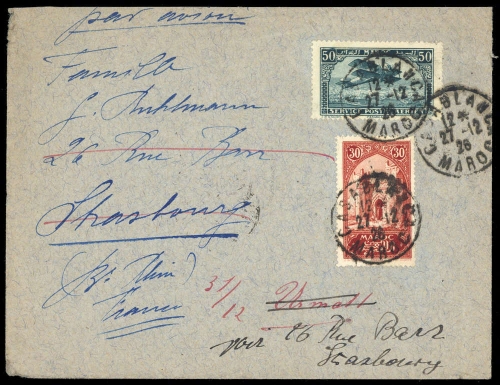 par avion
Famille
G. Kuhlmann
26 Rue Barr
Strasbourg
(Bs Rhin)
France
31/12
voir 26 Rue Barr
Strasbourg
50 50
SERVICE POSTE AERIENNE
CASABLANCA
12*
27-12
26
MAROC
30 30
MAROC
CASABLANCA
27-12
26
MAROC
CASABLANCA
12*
27-12
26
MAROC